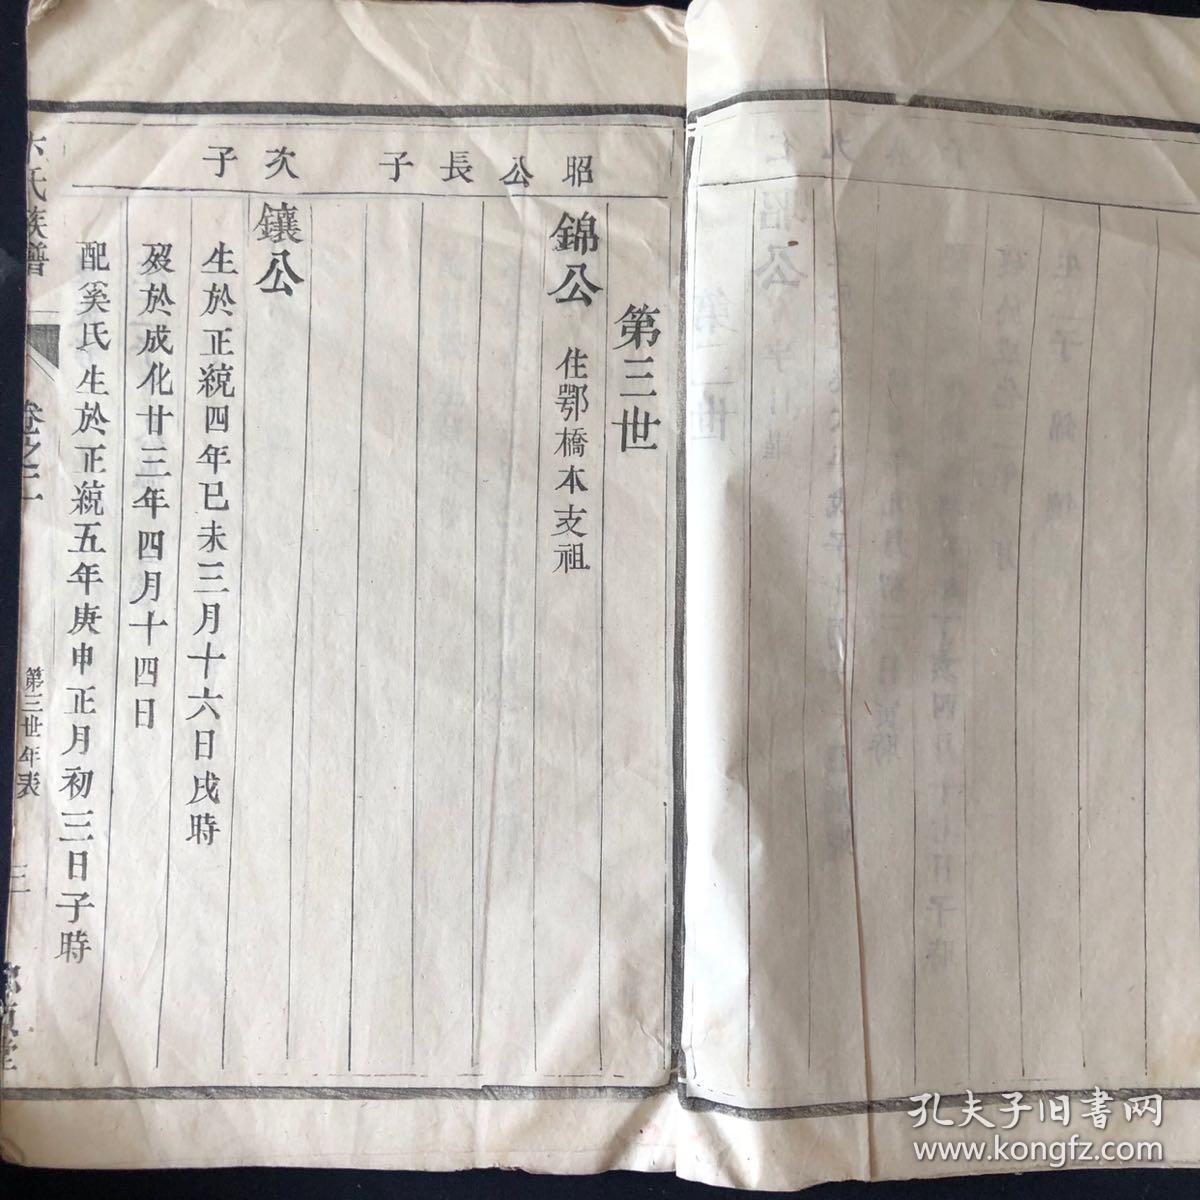 第三世
昭公長子
錦公 住鄂橋本支祖
次子
鑲公
生於正統四年己未三月十六日戌時
歿於成化廿三年四月十四日
配奚氏生於正統五年庚申正月初三日子時
氏族譜
卷之二
第三世年表
三
堂
孔夫子旧书网
www.kongfz.com